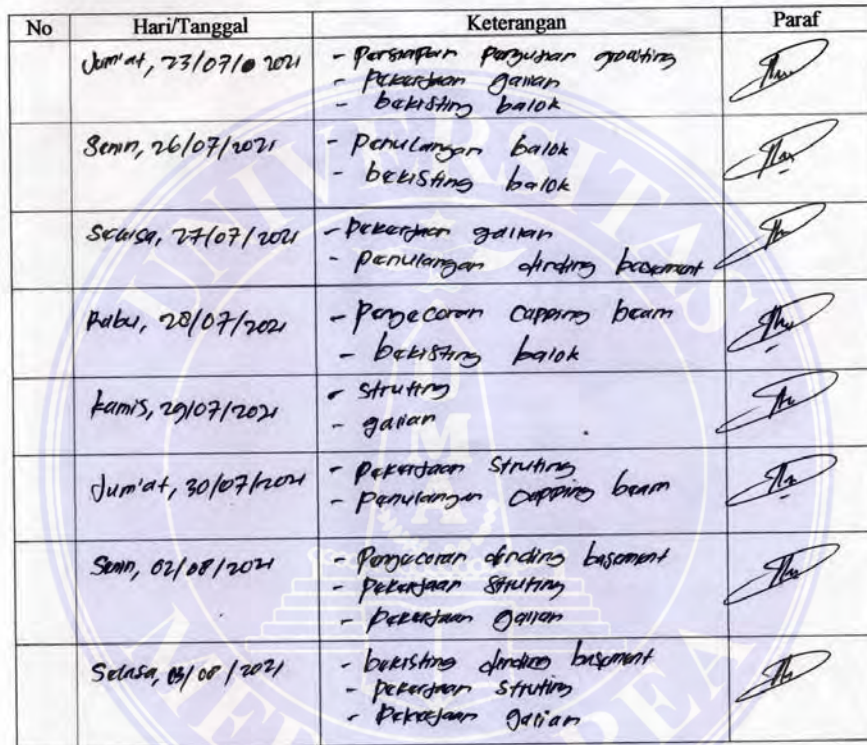 No Hari/Tanggal Keterangan Paraf
Jum'at, 23/07/2021 - Persiapan grouting
- Pekerjaan galian
- bekisting balok
Senin, 26/07/2021 - Penulangan balok
- bekisting balok
Selasa, 27/07/2021 - Pekerjaan galian
- Penulangan dinding basement
Rabu, 28/07/2021 - Pengecoran Capping beam
- bekisting balok
Kamis, 29/07/2021 - Struting
- galian
Jum'at, 30/07/2021 - Pekerjaan Struting
- Penulangan Capping beam
Senin, 02/08/2021 - Pengecoran dinding basement
- Pekerjaan Struting
- Pekerjaan galian
Selasa, 03/08/2021 - bekisting dinding basement
- Pekerjaan Struting
- Pekerjaan galian
UNIVERSITAS
UMA
MEDAN AREA